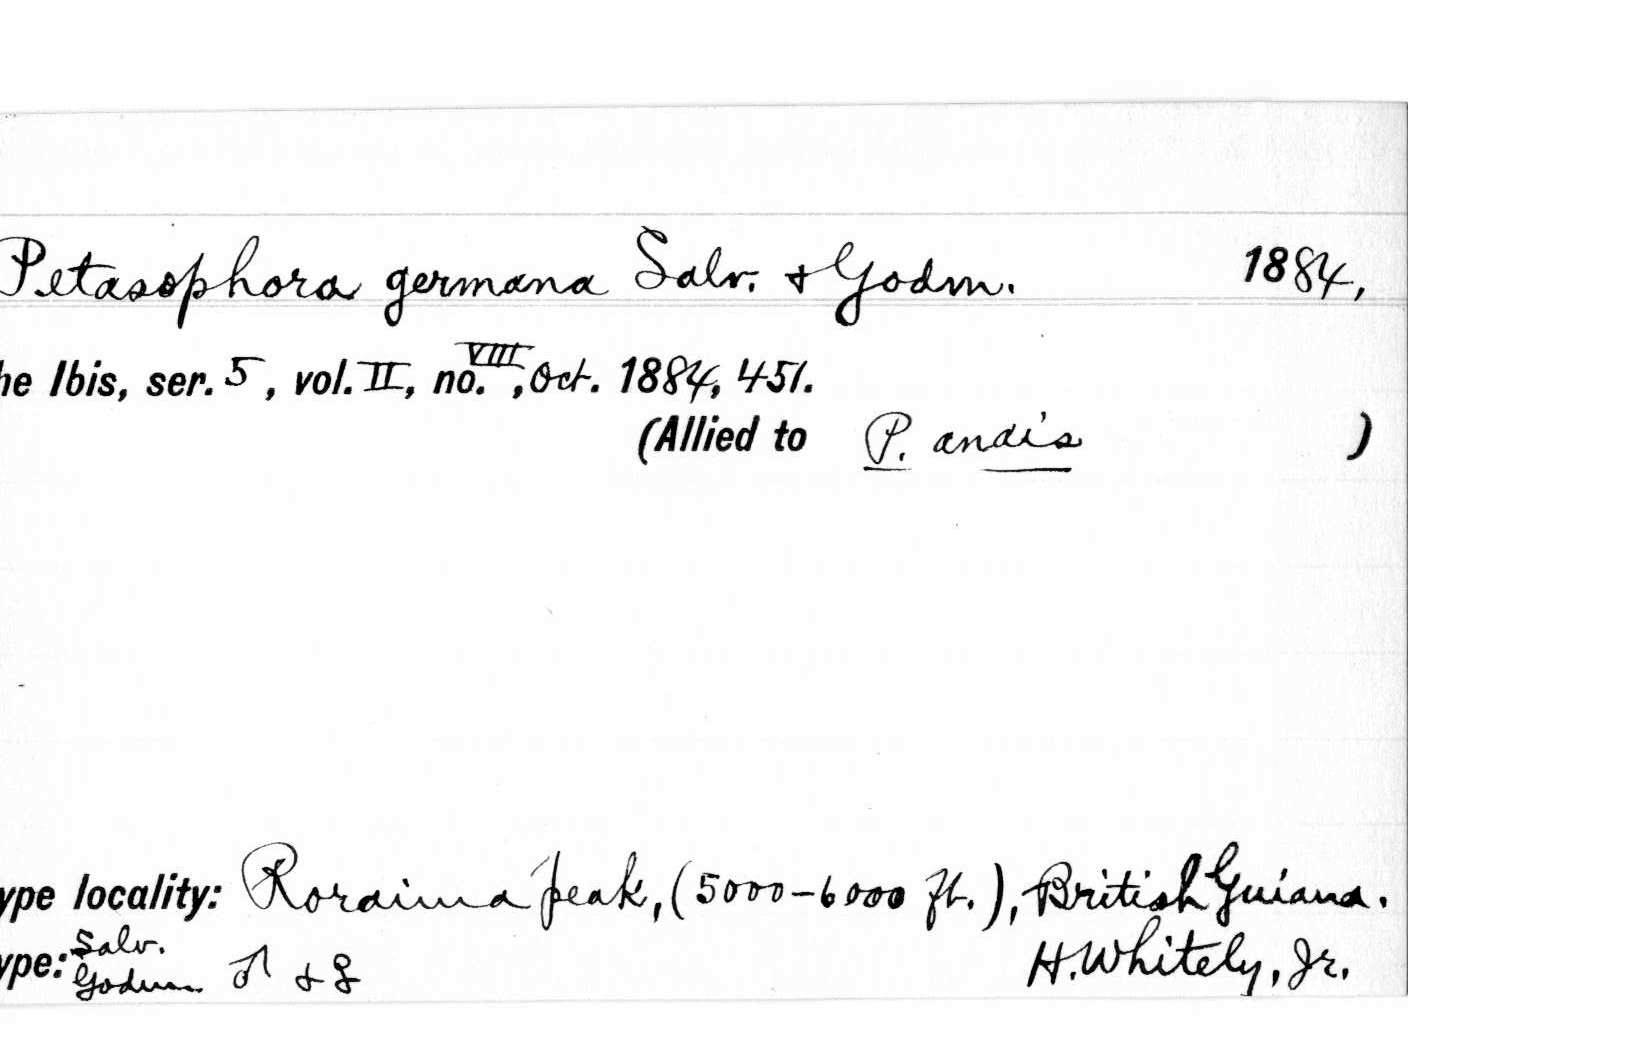 Petasophora germana Salv. & Godm. 1884,
he Ibis, ser. 5, vol. II, no. VIII, Oct. 1884, 451.
(Allied to P. anais )
ype locality: Roraima peak, (5000-6000 ft.), British Guiana.
ype: Salv. Godm. ♂ & ♀ H. Whitely, Jr.